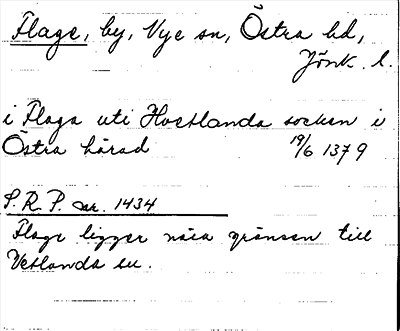 Flage, by, Nye sn, Östra hd,
Jönk. l.
i Flaga uti Hvetlanda socken i
Östra härad 19/6 1379
S.R.P. nr. 1434
Flage ligger nära gränsen till
Vetlanda sn.